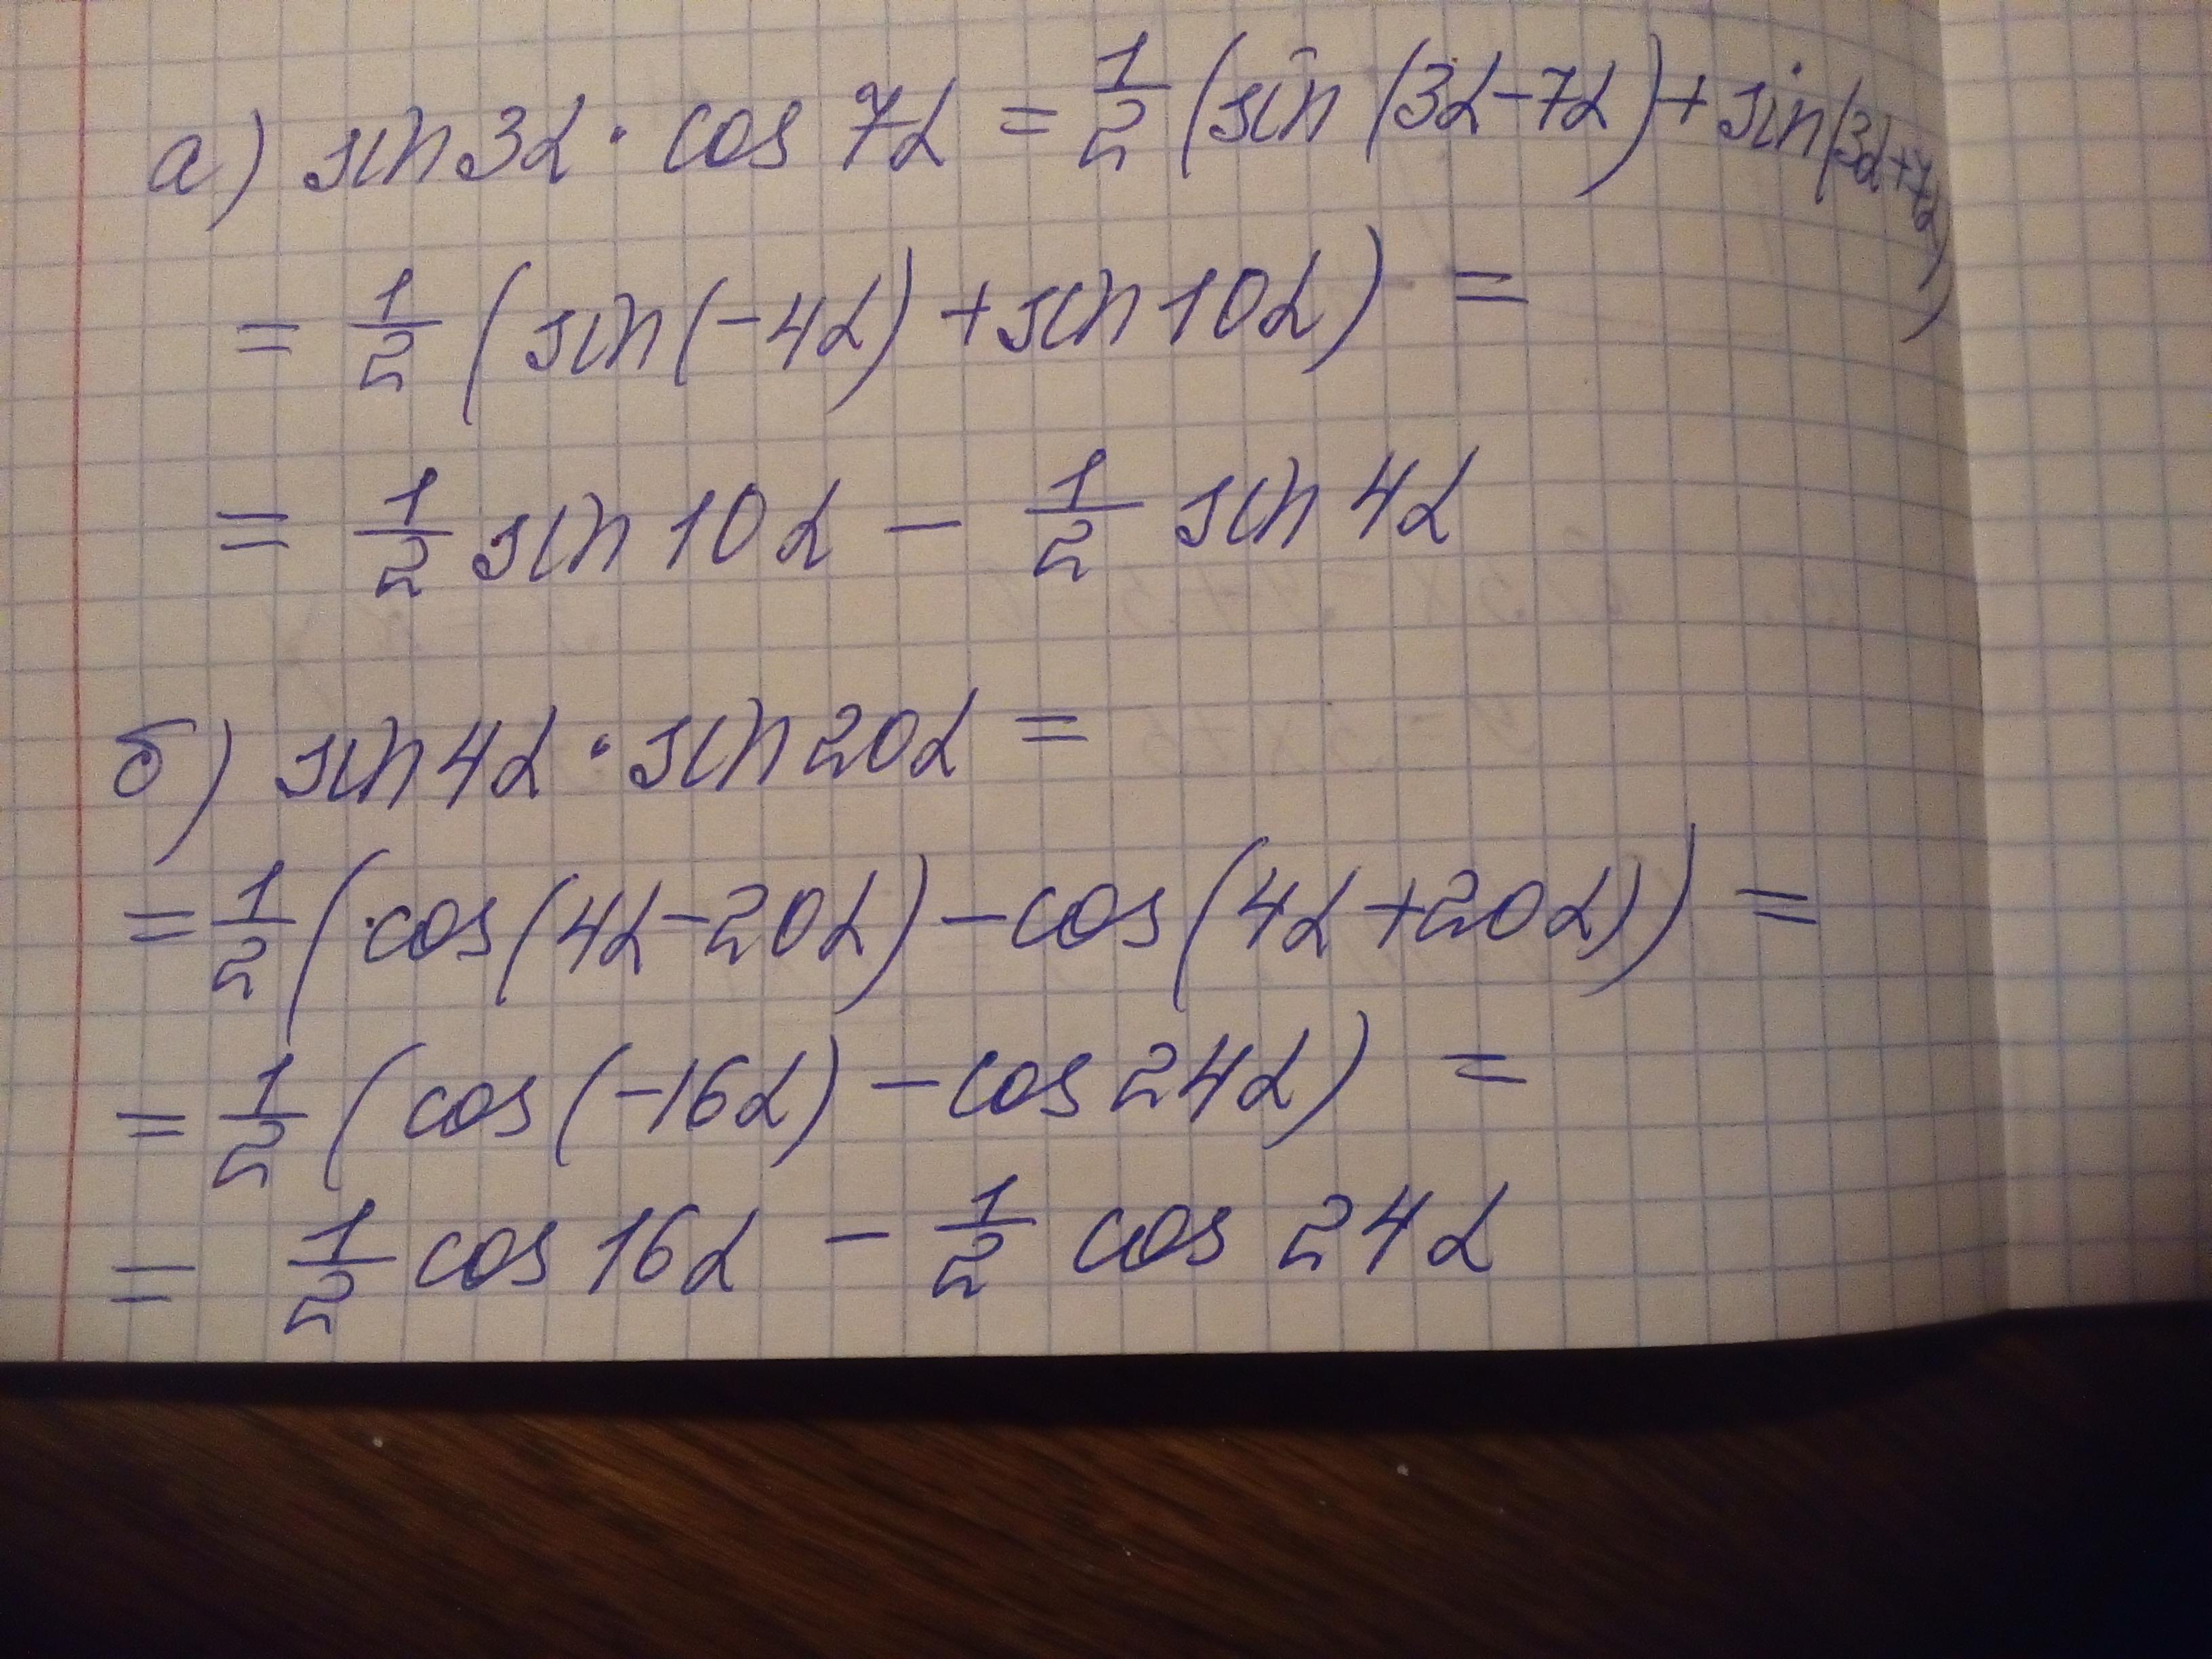 а) sin3α · cos 7α = 1/2 (sin (3α-7α) + sin(3α+7α))
= 1/2 (sin(-4α) + sin 10α) =
= 1/2 sin 10α - 1/2 sin 4α
б) sin4α · sin20α =
= 1/2 (cos(4α-20α) - cos(4α+20α)) =
= 1/2 (cos(-16α) - cos 24α) =
= 1/2 cos 16α - 1/2 cos 24α